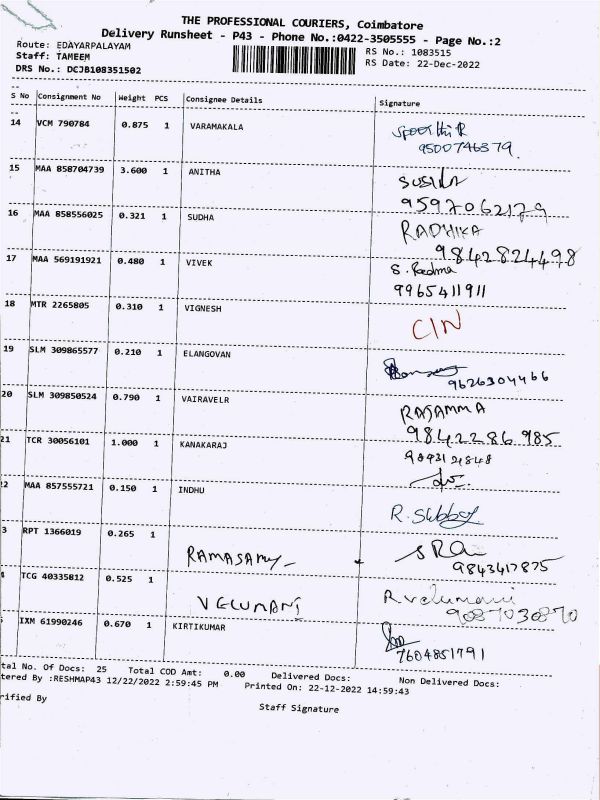 THE PROFESSIONAL COURIERS, Coimbatore
Delivery Runsheet - P43 - Phone No.:0422-3505555 - Page No.:2
Route: EDAYARPALAYAM
Staff: TAMEEM
DRS No.: DCJB108351502
RS No.: 1083515
RS Date: 22-Dec-2022
S No Consignment No Weight PCS Consignee Details Signature
14 VCM 790784 0.875 1 VARAMAKALA
9500746379
15 MAA 858704739 3.600 1 ANITHA
9597062179
16 MAA 858556025 0.321 1 SUDHA RADHIKA
9842824498
17 MAA 569191921 0.480 1 VIVEK S. Padma
9965411911
18 MTR 2265805 0.310 1 VIGNESH
19 SLM 309865577 0.210 1 ELANGOVAN
9626304466
20 SLM 309850524 0.790 1 VAIRAVELR RAJAMMA
9842286985
21 TCR 30056101 1.000 1 KANAKARAJ
22 MAA 857555721 0.150 1 INDHU
3 RPT 1366019 0.265 1 RAMASAMY
9843417875
4 TCG 40335812 0.525 1 VELUMANI R velumani
9087030870
5 IXM 61990246 0.670 1 KIRTIKUMAR
7604851791
tal No. Of Docs: 25 Total COD Amt: 0.00 Delivered Docs: Non Delivered Docs:
tered By :RESHMAP43 12/22/2022 2:59:45 PM Printed On: 22-12-2022 14:59:43
rified By
Staff Signature